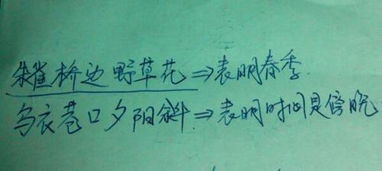 朱雀桥边野草花⇒表明春季
乌衣巷口夕阳斜⇒表明时间是傍晚